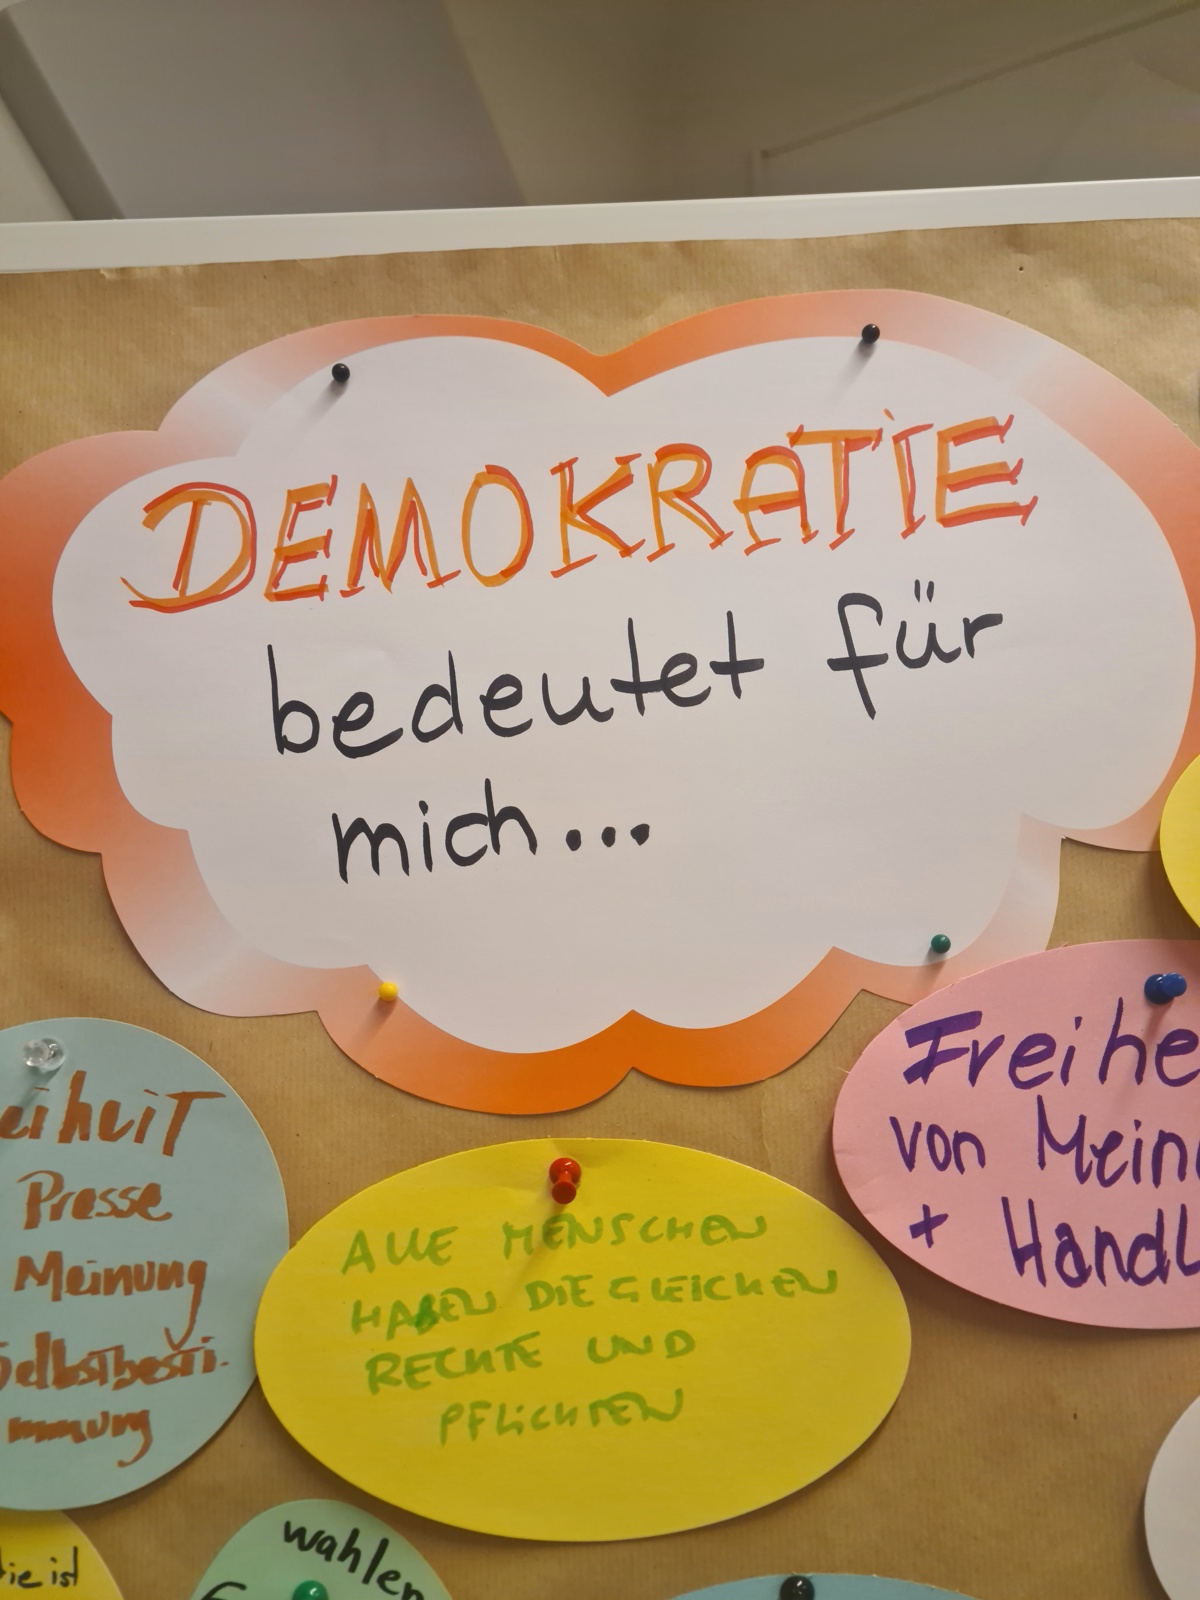 DEMOKRATIE
bedeutet für
mich...
eiheit
Presse
Meinung
Selbstbesti-
mmung
ALLE MENSCHEN
HABEN DIE GLEICHEN
RECHTE UND
PFLICHTEN
Freihe
von Mein
+ Handl
ie ist
wahlen